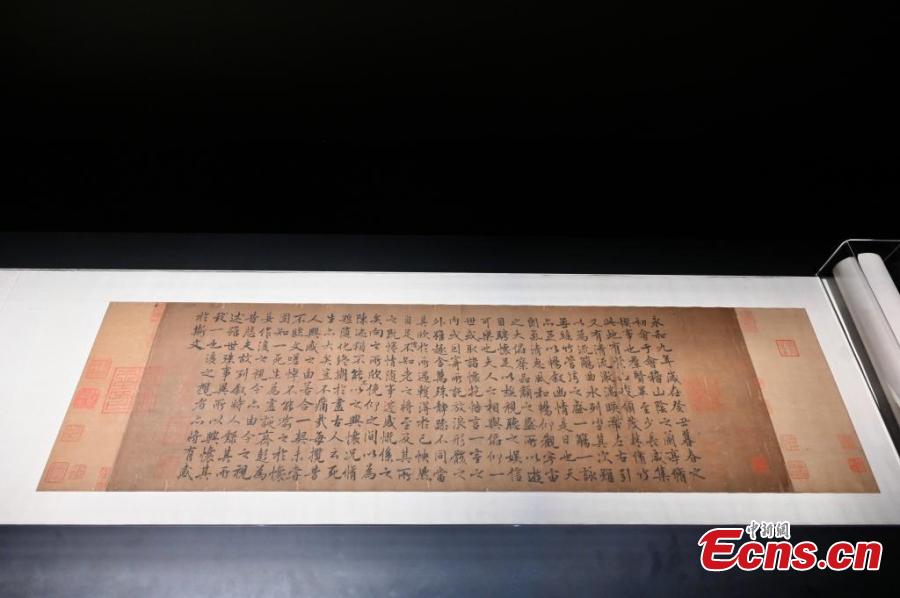 永和九年歲在癸丑暮春之
初會于會稽山陰之蘭亭脩
禊事也羣賢畢至少長咸集
此地有崇山峻領茂林脩竹
又有清流激湍映帶左右引
以為流觴曲水列坐其次雖
無絲竹管弦之盛一觴一詠
亦足以暢敘幽情是日也天
朗氣清惠風和暢仰觀宇宙
之大俯察品類之盛所以遊
目騁懷足以極視聽之娛信
可樂也夫人之相與俯仰一
世或取諸懷抱悟言一室之
內或因寄所託放浪形骸之
外雖趣舍萬殊靜躁不同當
其欣於所遇暫得於己怏然
自足不知老之將至及其所
之既惓情隨事遷感慨係之
矣向之所欣俛仰之間以為
陳迹猶不能不以之興懷況脩
短隨化終期於盡古人云死
生亦大矣豈不痛哉每攬昔
人興感之由若合一契未嘗
不臨文嗟悼不能喻之於懷
固知一死生為虛誕齊彭殤為
妄作後之視今亦由今之視
昔悲夫故列敘時人錄其所
述雖世殊事異所以興懷其
致一也後之攬者亦將有感
於斯文
中新網
Ecns.cn